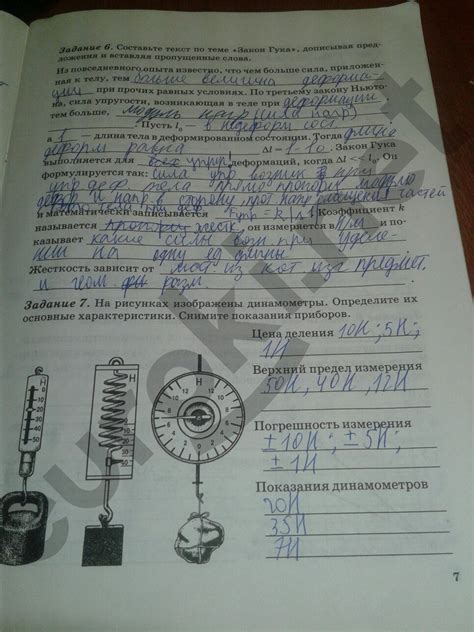 Задание 6. Составьте текст по теме «Закон Гука», дописывая пред-
ложения и вставляя пропущенные слова.
Из повседневного опыта известно, что чем больше сила, приложен-
ная к телу, тем больше величина деформа-
ции при прочих равных условиях. По третьему закону Ньюто-
на, сила упругости, возникающая в теле при деформации
тем больше, модуль
Пусть l₀ — в недеформ сост.
а l — длина тела в деформированном состоянии. Тогда длина
деформ равна Δl = l - l₀. Закон Гука
выполняется для всех упруг деформаций, когда Δl << l₀. Он
формулируется так: сила упр возник при
упр деф тела прямо пропорц модулю
деф и напр в сторону прот напр частей
и математически записывается Fупр = k|Δl| Коэффициент k
называется жестк, он измеряется в Н/м и по-
казывает какие силы при удлине-
нии на одну ед длины
Жёсткость зависит от мат из кот изг предмет,
и геом разм
Задание 7. На рисунках изображены динамометры. Определите их
основные характеристики. Снимите показания приборов.
Цена деления 10Н; 5Н;
1Н
Верхний предел измерения
50Н, 40Н, 12Н
Погрешность измерения
±10Н; ±5Н;
±1Н
Показания динамометров
20Н
35Н
7Н
7
euroki.net